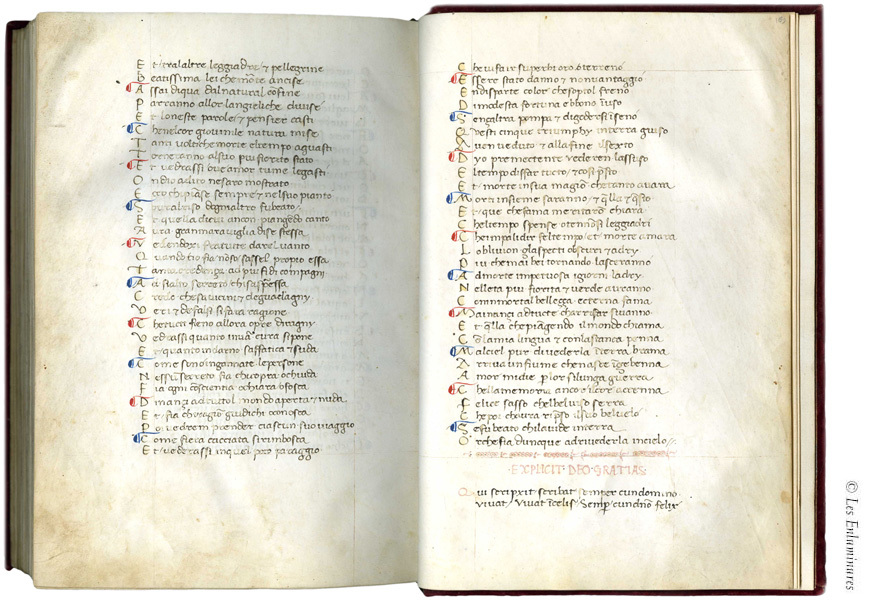 E t tral altre leggiadre & pellegrine
B eatissima lei che morte ancise
A ssai diqua dal natural cofine
P arranno allor langieliche divise
E t loneste parole & pensier casti
C henelcor giovinile natura mise
T anti volti che morte el tempo a guasti
T orneranno alsuo piu fiorito stato
E t vedrassi ove amor tume legasti
O ndio adito nesaro mostrato
E cco chi pianse sempre & nelsuo pianto
S dogni altro fu beato
E t quella dicui ancor piangedo canto
A vra gran maraviglia dise stessa
V edendosi fra tutte dar el vanto
Q uando cio fia nolso sassel proprio essa
T anta credenza ad piu fidi compagni
A si alto secreto chi sapressa
C redo che savicini & deguadagni
V eri & defalsi sifara ragione
C he tucti fieno allora opre daragni
V edrassi quanto inva cura sipone
E t quanto indarno saffatica & suda
C ome sono ingannate lepersone
N essu secreto fia chicopra ochiuda
F ia ogni coscientia ochiara ofosca
D inanzi ad tutol mondo aperta & nuda
E t fia chi ragio giudichi conosca
P oi vedrem prender ciascun suo viaggio
C ome fiera cacciata si rimbosca
E t vederassi inquel poco paraggio
C he vi fa ir superbi oro & terreno
E ssere stato danno & non vantaggio
E ndisparte color chesoptol freno
D imodesta fortuna ebbono iuso
S enzaltra pompa digodersi iseno
Q uesti cinque triumphy interra giuso
A veduti & allafine ilsexto
D yo premectente vederen lassuso
E ltempo disfar tucto & cosi psto
E t morte insua magio chetanto avara
M orti insieme saranno & qlla & qsto
E t que chefama meritaro chiara
C heltempo spense & leggiadri
C heimpallidir feltempo et morte amara
L oblivion glaspecti obscuri & adry
P iu chemai bei tornando lasceranno
A dmorte impetuosa igiorni ladry
N elleta piu fiorita & verde avranno
C onimmortal bellezza ecterna fama
M ainanzi adtucte charifar sivanno
E t qlla chepiagendo ilmondo chiama
C o lamia lingua & conlastanca penna
M alciel pur divederla itera brama
A rriva un fiume chenasce igebenna
A mor midie plor silunga guerra
C hellamemoria anco elcore accenna
F elice sasso chelbelviso serra
C he poi chavra rpso ilsuo belvelo
S e fu beato chilavide interra
O r chefia dunque adrivederla incielo
EXPLICIT DEO GRATIAS
Q ui scripxit scribat semper cundomino
vivat / vivat icelis Semp cundno felix
© Les Enluminures